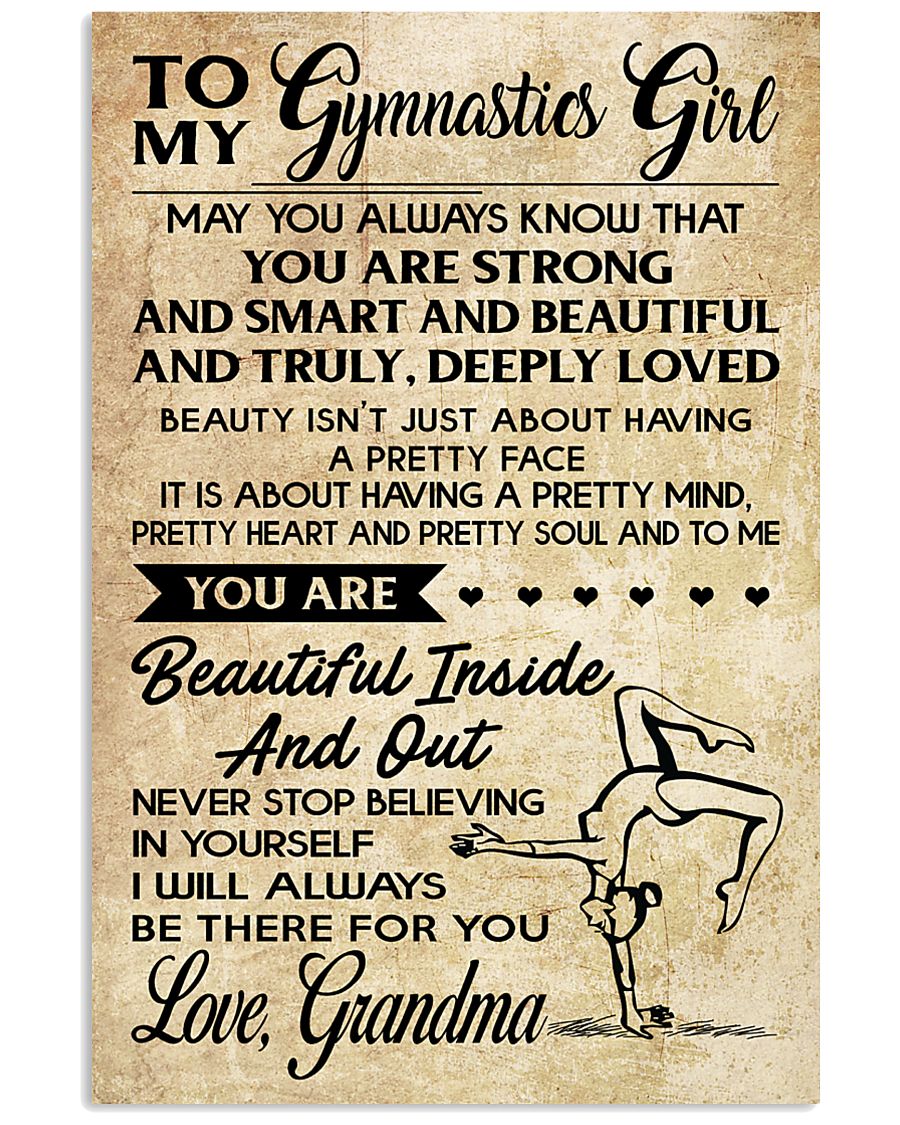 TO MY Gymnastics Girl
MAY YOU ALWAYS KNOW THAT
YOU ARE STRONG
AND SMART AND BEAUTIFUL
AND TRULY, DEEPLY LOVED
BEAUTY ISN'T JUST ABOUT HAVING
A PRETTY FACE
IT IS ABOUT HAVING A PRETTY MIND,
PRETTY HEART AND PRETTY SOUL AND TO ME
YOU ARE
Beautiful Inside
And Out
NEVER STOP BELIEVING
IN YOURSELF
I WILL ALWAYS
BE THERE FOR YOU
Love, Grandma